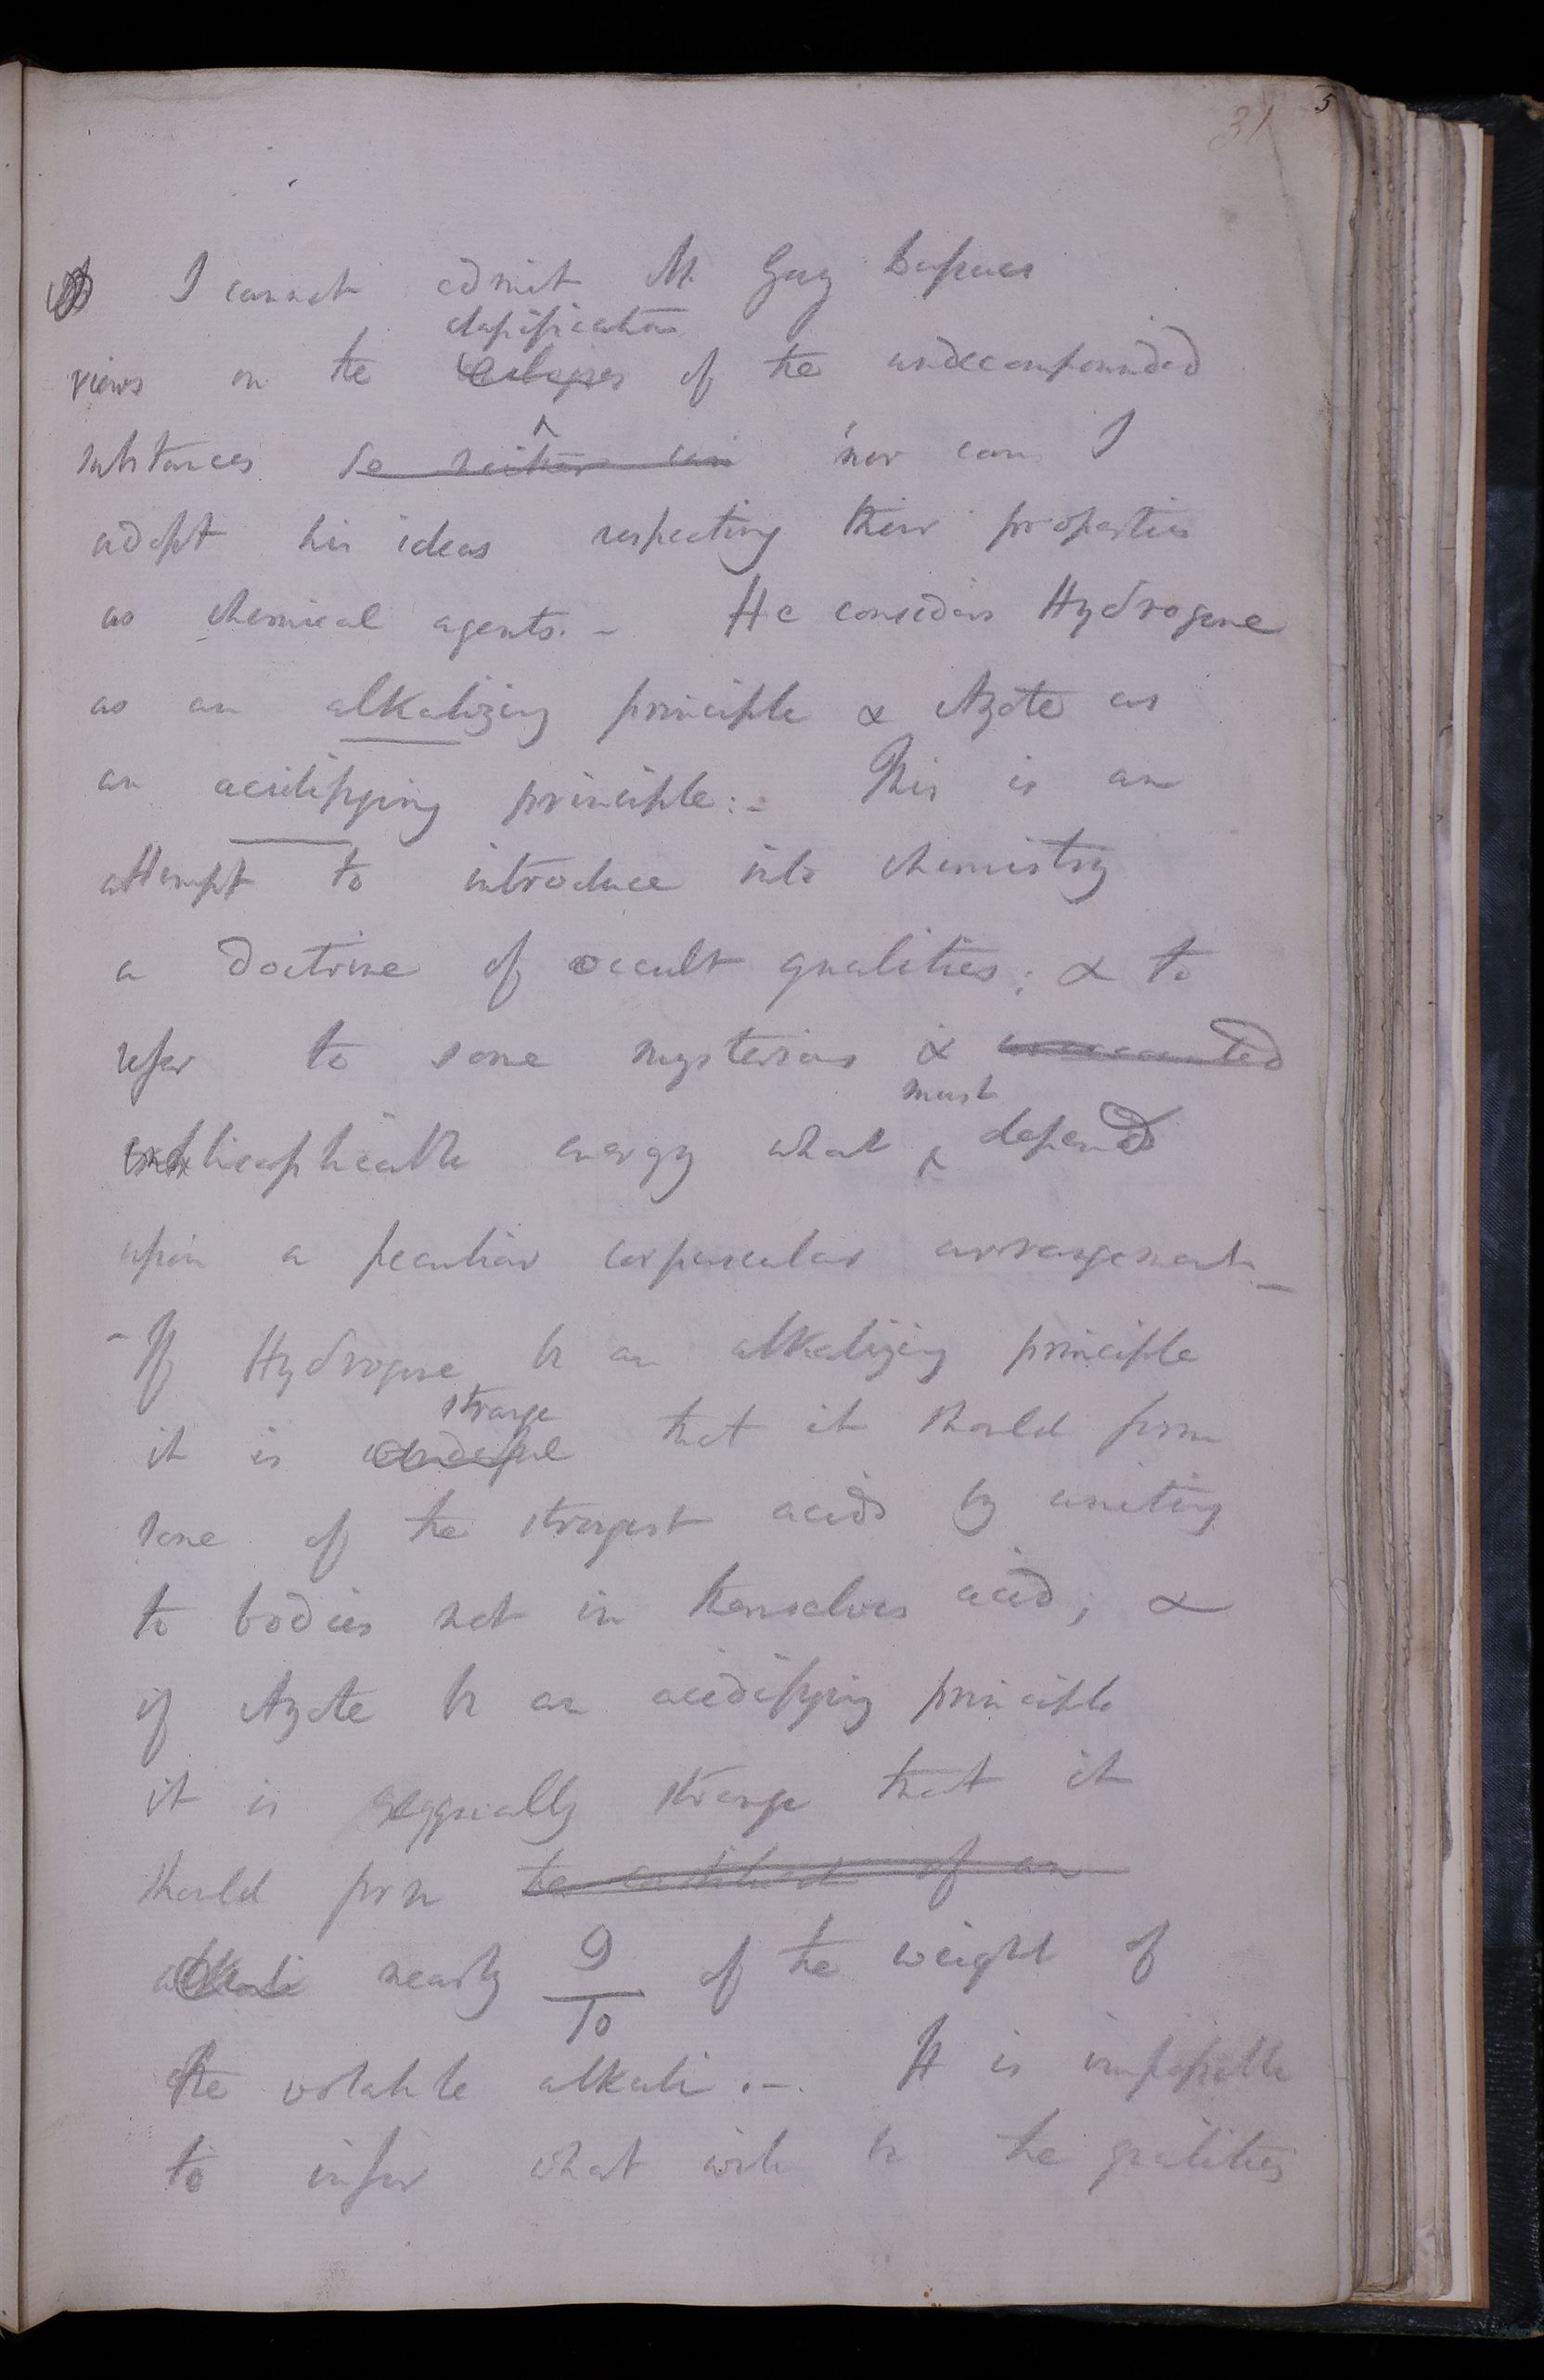 31 5
I cannot admit M. Gay Lussacs
classification
views on the of the undecompounded
substances nor can I
adopt his ideas respecting their properties
as chemical agents. - He considers Hydrogene
as an alkalizing principle & Azote as
an acidifying principle: - This is an
attempt to introduce into chemistry
a doctrine of occult qualities; & to
refer to some mysterious &
must
inexplicable energy what depend
upon a peculiar corpuscular arrangement -
- If Hydrogene be an alkalizing principle
strange
it is wonderful that it should form
some of the strongest acids by uniting
to bodies not in themselves acid; &
if Azote be an acidifying principle
it is equally strange that it
should form the constituent of an
alkali nearly 9/10 of the weight of
the volatile alkali. -. It is impossible
to infer what will be the qualities